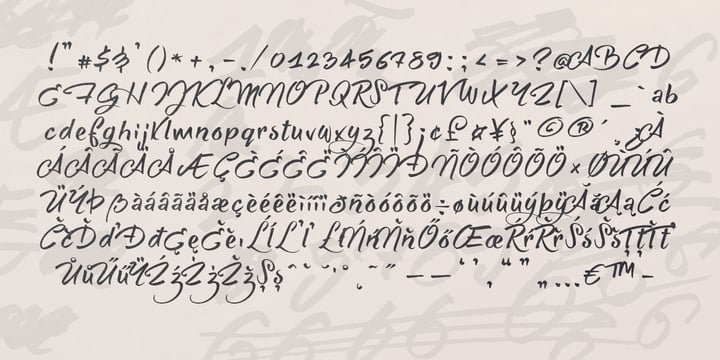 !"#$%'()*+,-./0123456789:;<=>?@ABCD
EFGHIJKLMNOPQRSTUVWXYZ[\]_`ab
cdefghijklmnopqrstuvwxyz{|}¡¢£¤¥§¨©®´¸À
ÁÂÃÄÅÆÇÈÉÊËÌÍÎÏÐÑÒÓÔÕÖ×ØÙÚÛ
ÜÝÞßàáâãäåæçèéêëìíîïðñòóôõö÷øùúûüýþÿĂăĄąĆć
ČčĎďĐđĘęĚěıĹĺĽľŁłŃńŇňŐőŒœŔŕŘřŚśŠšŢţŤť
ŮůŰűŸŹźŻżŽžȘșˆˇ˘˙˚˛˜˝–—‘’‚“”„…€™−